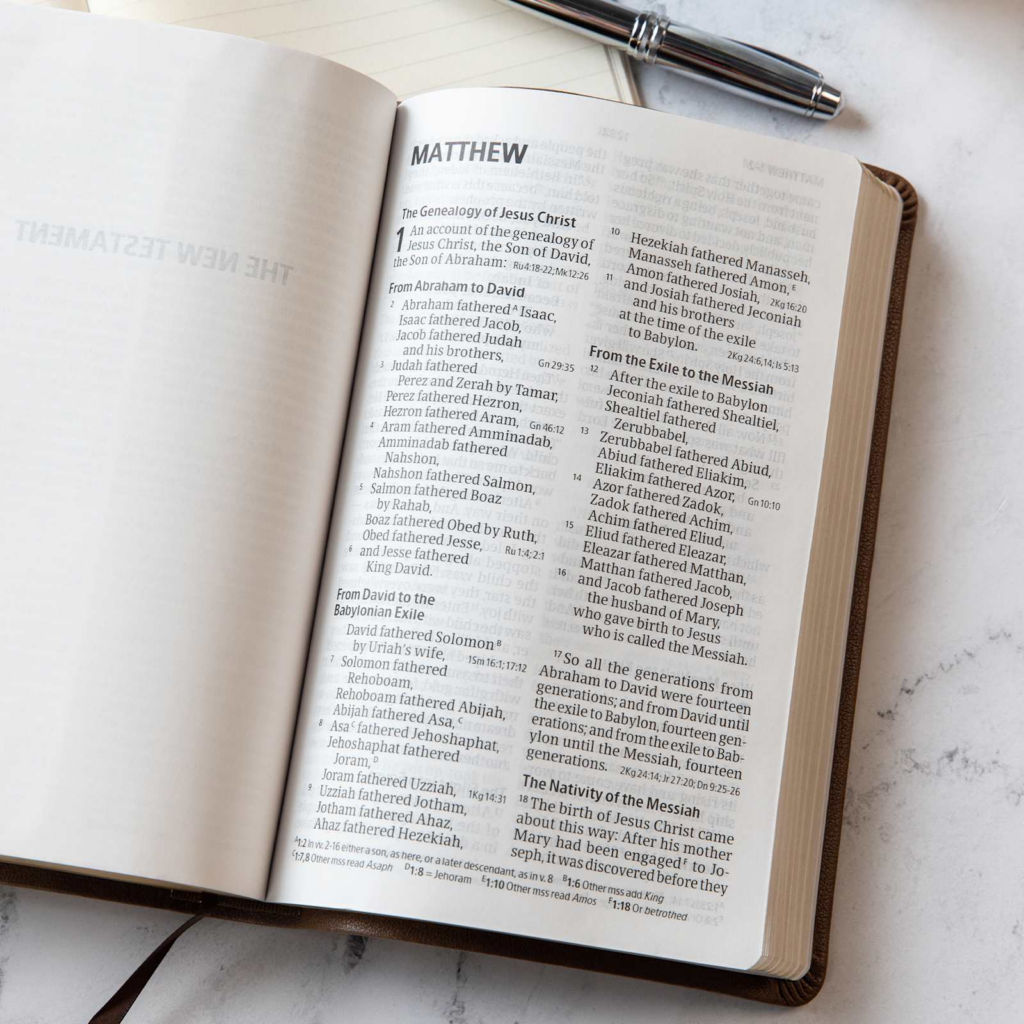 THE NEW TESTAMENT
MATTHEW
The Genealogy of Jesus Christ
1 An account of the genealogy of
Jesus Christ, the Son of David,
the Son of Abraham: Ru4:18-22; Mk12:26
From Abraham to David
2 Abraham fathered A Isaac,
Isaac fathered Jacob,
Jacob fathered Judah
and his brothers, Gn 29:35
3 Judah fathered
Perez and Zerah by Tamar,
Perez fathered Hezron,
Hezron fathered Aram, Gn 46:12
4 Aram fathered Amminadab,
Amminadab fathered
Nahshon,
Nahshon fathered Salmon,
5 Salmon fathered Boaz
by Rahab,
Boaz fathered Obed by Ruth,
Obed fathered Jesse, Ru 1:4; 2:1
6 and Jesse fathered
King David.
From David to the
Babylonian Exile
David fathered Solomon B
by Uriah's wife, 1Sm 16:1; 17:12
7 Solomon fathered
Rehoboam,
Rehoboam fathered Abijah,
Abijah fathered Asa, C
8 Asa C fathered Jehoshaphat,
Jehoshaphat fathered
Joram, D
Joram fathered Uzziah, 1Kg 14:31
9 Uzziah fathered Jotham,
Jotham fathered Ahaz,
Ahaz fathered Hezekiah,
10 Hezekiah fathered Manasseh,
Manasseh fathered Amon, E
Amon fathered Josiah, 2Kg 16:20
11 and Josiah fathered Jeconiah
and his brothers
at the time of the exile
to Babylon. 2Kg 24:6,14; Is 5:13
From the Exile to the Messiah
12 After the exile to Babylon
Jeconiah fathered Shealtiel,
Shealtiel fathered
Zerubbabel,
13 Zerubbabel fathered Abiud,
Abiud fathered Eliakim,
Eliakim fathered Azor, Gn 10:10
14 Azor fathered Zadok,
Zadok fathered Achim,
Achim fathered Eliud,
15 Eliud fathered Eleazar,
Eleazar fathered Matthan,
Matthan fathered Jacob,
16 and Jacob fathered Joseph
the husband of Mary,
who gave birth to Jesus
who is called the Messiah.
17 So all the generations from
Abraham to David were fourteen
generations; and from David until
the exile to Babylon, fourteen gen-
erations; and from the exile to Bab-
ylon until the Messiah, fourteen
generations. 2Kg 24:14; Jr 27:20; Dn 9:25-26
The Nativity of the Messiah
18 The birth of Jesus Christ came
about this way: After his mother
Mary had been engaged F to Jo-
seph, it was discovered before they
A 1:2 In vv. 2-16 either a son, as here, or a later descendant, as in v. 8 B 1:6 Other mss add King
C 1:7,8 Other mss read Asaph D 1:8 = Jehoram E 1:10 Other mss read Amos F 1:18 Or betrothed